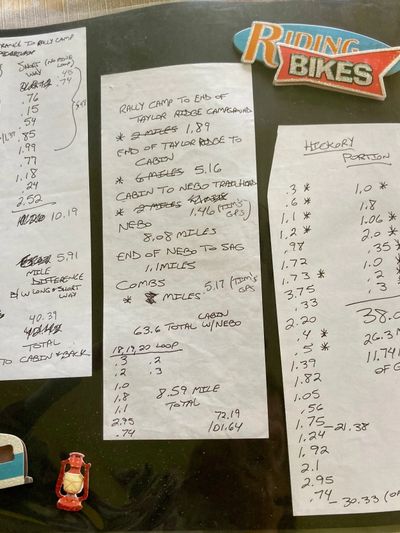 RIDING
BIKES
TRANCE TO RALLY CAMP
SHORT (NO RIDGE
WAY LOOP)
.45
.74
.76
.15
.54
.85
1.99
.77
1.18
.24
2.52
10.19
5.91
MILE
DIFFERENCE
B/W LONG & SHORT
WAY
40.39
TOTAL
TO CABIN & BACK
RALLY CAMP TO END OF
TAYLOR RIDGE CAMPGROUND
* 2 MILES 1.89
END OF TAYLOR RIDGE TO
CABIN
* 6 MILES * 5.16
CABIN TO NEBO TRAILHEAD
* 2 MILES 1.46 (TIM'S
GPS)
NEBO
8.08 MILES
END OF NEBO TO SAG
1.1 MILES
COMBS
* MILES 5.17 (TIM'S
GPS
CABIN
63.6 TOTAL W/NEBO
18,19,20 LOOP
.3 .2
.2 .3
1.0
1.8 8.59 MILE
1.1 TOTAL
2.95 72.19
.74 /101.64
HICKORY
PORTION
.3 * 1.0 *
.6 * 1.8
1.1 * 1.06 *
1.2 * 2.0 *
.98 .35 *
1.72 1.0 *
1.73 * .2 *
3.75 .3 *
.33
2.20 38.0
.4 * 26.3 M
.5 * 11.741
1.39 OF G
1.82
1.05
.56
1.75 - 21.38
1.24
1.92
2.1
2.95
.74 - 30.33 (OR